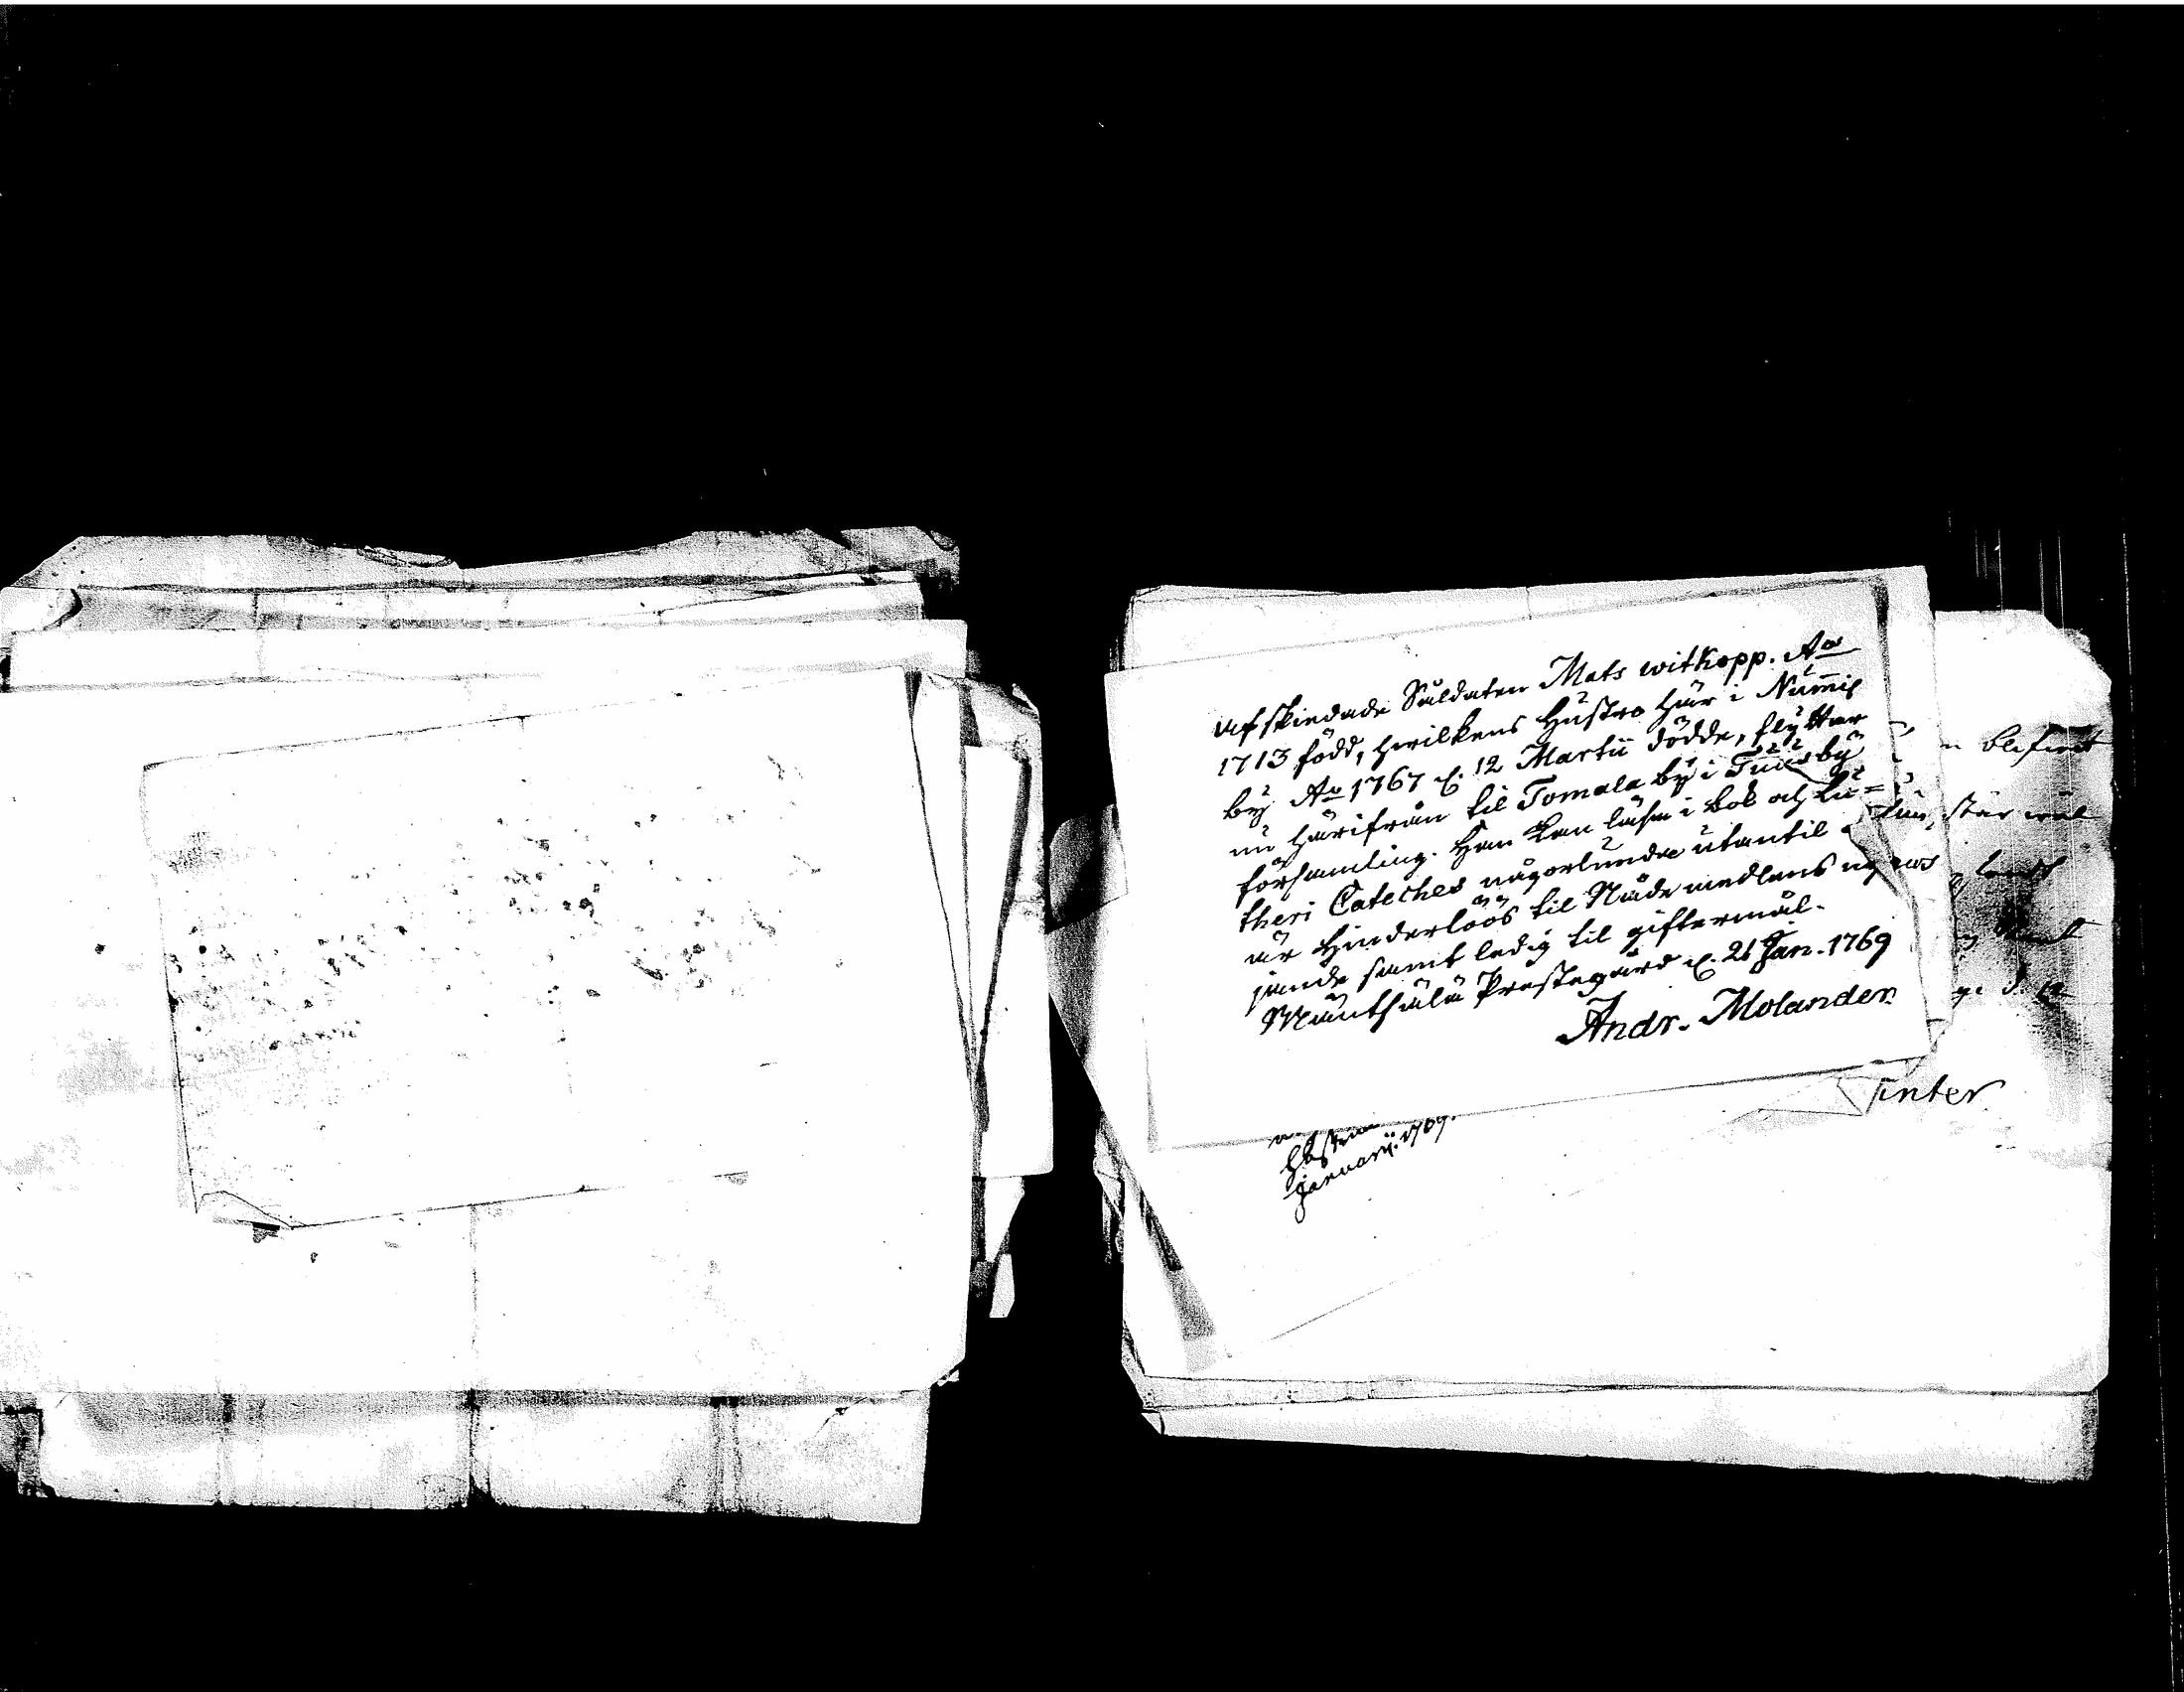 Afskiedade Såldaten Mats witkopp. Ao
1713 född, hwilkens Hustro här i Nummis
by Ao 1767 d. 12 Martii dödde, flyttar
nu härifrån til Tomala by i Tuusby
församling. Han kan läsa i bok och Lu=
theri Cateches någorlunda utantil
är Hinderlöös til Nådemedlens
jande samt ledig til giftermål.
Mäntsälä Prestegård d. 21 Jan. 1769
Andr. Molander.
januarii. 1769.